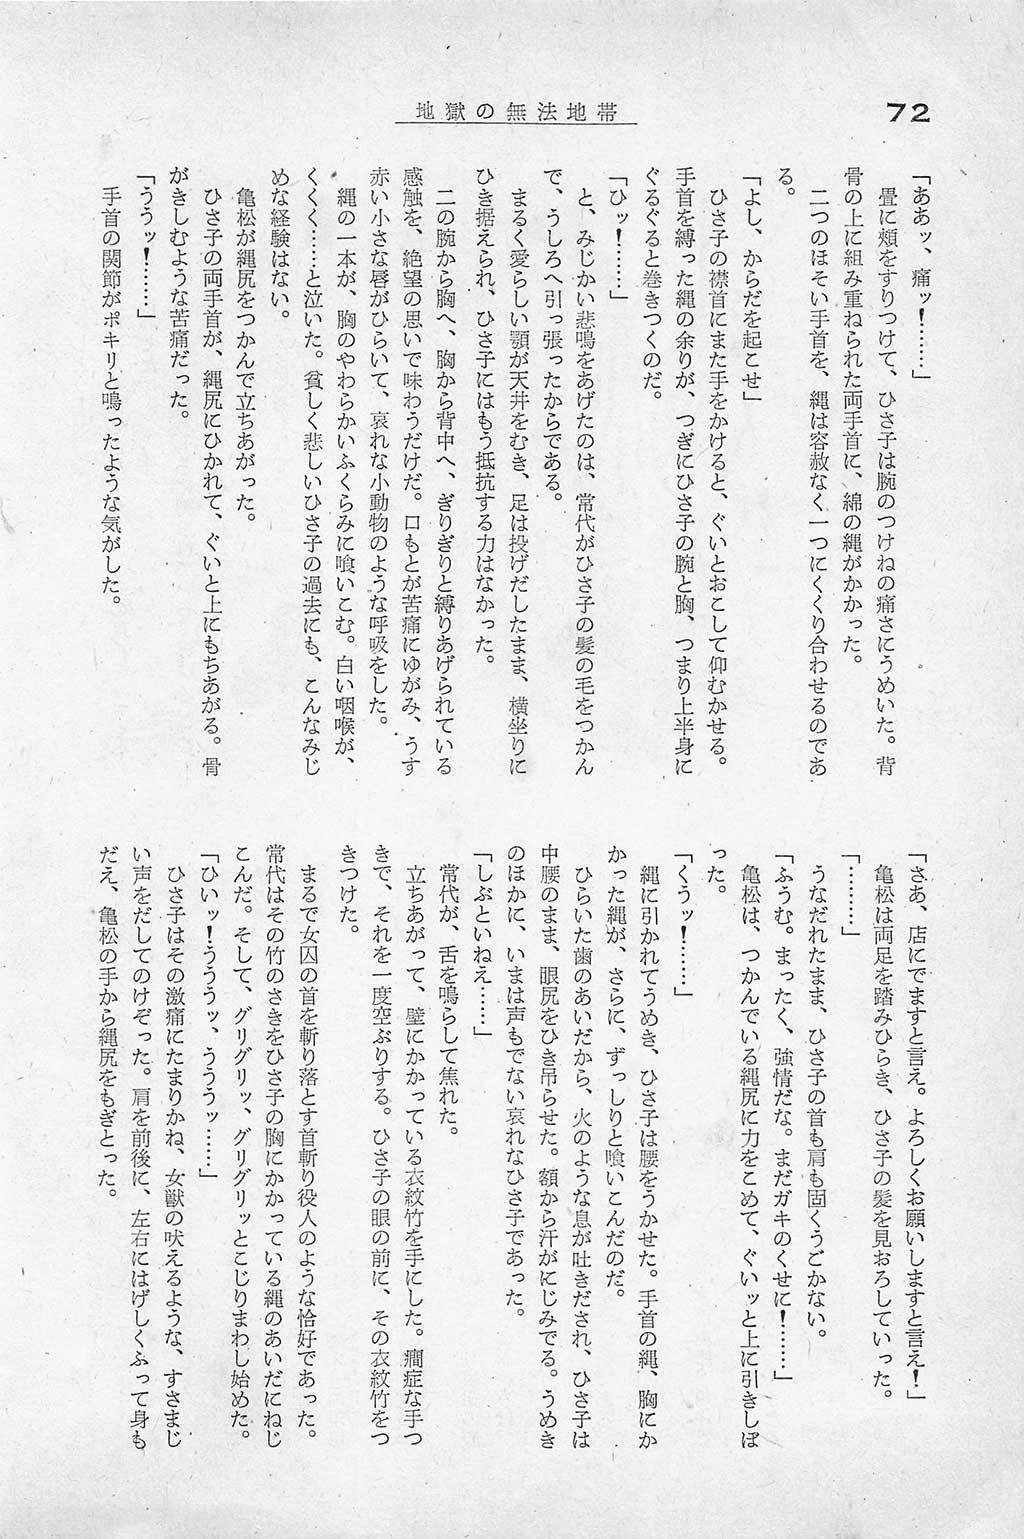 72
地獄の無法地帯
「ああッ、痛ッ！……」
畳に頰をすりつけて、ひさ子は腕のつけねの痛さにうめいた。背
骨の上に組み重ねられた両手首に、綿の縄がかかった。
二つのほそい手首を、縄は容赦なく一つにくくり合わせるのであ
る。
「よし、からだを起こせ」
ひさ子の襟首にまた手をかけると、ぐいとおこして仰むかせる。
手首を縛った縄の余りが、つぎにひさ子の腕と胸、つまり上半身に
ぐるぐると巻きつくのだ。
「ひッ！……」
と、みじかい悲鳴をあげたのは、常代がひさ子の髪の毛をつかん
で、うしろへ引っ張ったからである。
まるく愛らしい顎が天井をむき、足は投げだしたまま、横坐りに
ひき据えられ、ひさ子にはもう抵抗する力はなかった。
二の腕から胸へ、胸から背中へ、ぎりぎりと縛りあげられている
感触を、絶望の思いで味わうだけだ。口もとが苦痛にゆがみ、うす
赤い小さな唇がひらいて、哀れな小動物のような呼吸をした。
縄の一本が、胸のやわらかいふくらみに喰いこむ。白い咽喉が、
くくく……と泣いた。貧しく悲しいひさ子の過去にも、こんなみじ
めな経験はない。
亀松が縄尻をつかんで立ちあがった。
ひさ子の両手首が、縄尻にひかれて、ぐいと上にもちあがる。骨
がきしむような苦痛だった。
「ううッ！……」
手首の関節がポキリと鳴ったような気がした。
「さあ、店にでますと言え。よろしくお願いしますと言え！」
亀松は両足を踏みひらき、ひさ子の髪を見おろしていった。
「………」
うなだれたまま、ひさ子の首も肩も固くうごかない。
「ふうむ。まったく、強情だな。まだガキのくせに！……」
亀松は、つかんでいる縄尻に力をこめて、ぐいッと上に引きしぼ
った。
「くうッ！……」
縄に引かれてうめき、ひさ子は腰をうかせた。手首の縄、胸にか
かった縄が、さらに、ずっしりと喰いこんだのだ。
ひらいた歯のあいだから、火のような息が吐きだされ、ひさ子は
中腰のまま、眼尻をひき吊らせた。額から汗がにじみでる。うめき
のほかに、いまは声もでない哀れなひさ子であった。
「しぶといねえ……」
常代が、舌を鳴らして焦れた。
立ちあがって、壁にかかっている衣紋竹を手にした。癇症な手つ
きで、それを一度空ぶりする。ひさ子の眼の前に、その衣紋竹をつ
きつけた。
まるで女囚の首を斬り落とす首斬り役人のような恰好であった。
常代はその竹のさきをひさ子の胸にかかっている縄のあいだにねじ
こんだ。そして、グリグリッ、グリグリッとこじりまわし始めた。
「ひいッ！うううッ、うううッ……」
ひさ子はその激痛にたまりかね、女獣の吠えるような、すさまじ
い声をだしてのけぞった。肩を前後に、左右にはげしくふって身も
だえ、亀松の手から縄尻をもぎとった。